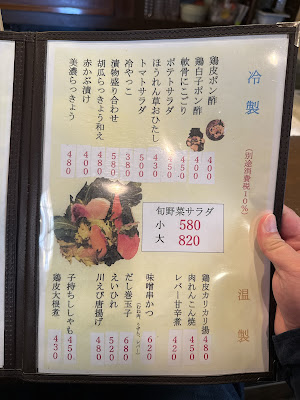 冷製
(別途消費税10%)
鶏皮ポン酢 400
鶏白子ポン酢 400
軟骨にこごり
ポテトサラダ
ほうれん草おひたし
トマトサラダ
冷やっこ 380
漬物盛り合わせ 580
胡瓜らっきょう和え
赤かぶ漬け
美濃らっきょう 480
旬野菜サラダ
小 580
大 820
温製
鶏皮カリカリ揚 480
肉れんこん焼 450
レバー甘辛煮 420
味噌串かつ 620
だし巻玉子 680
えいひれ 520
川えび唐揚げ 480
子持ちししゃも 450
鶏皮大根煮 430